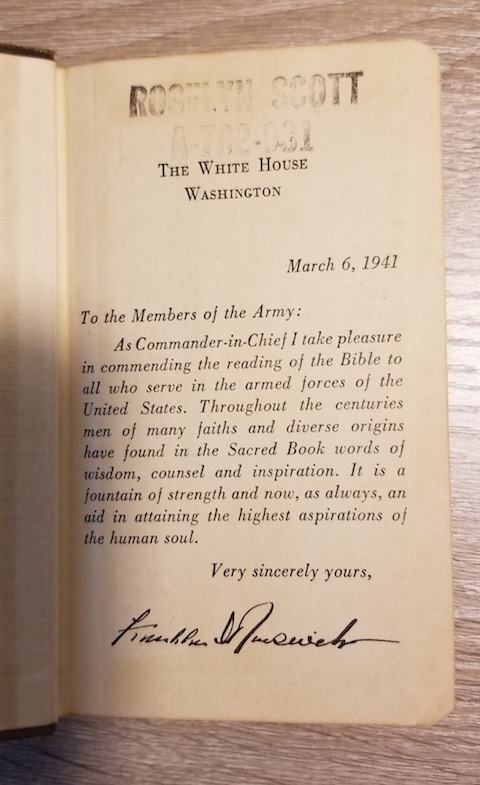 ROSELYN SCOTT
A-702-931
THE WHITE HOUSE
WASHINGTON
March 6, 1941
To the Members of the Army:
As Commander-in-Chief I take pleasure
in commending the reading of the Bible to
all who serve in the armed forces of the
United States. Throughout the centuries
men of many faiths and diverse origins
have found in the Sacred Book words of
wisdom, counsel and inspiration. It is a
fountain of strength and now, as always, an
aid in attaining the highest aspirations of
the human soul.
Very sincerely yours,
Franklin D Roosevelt